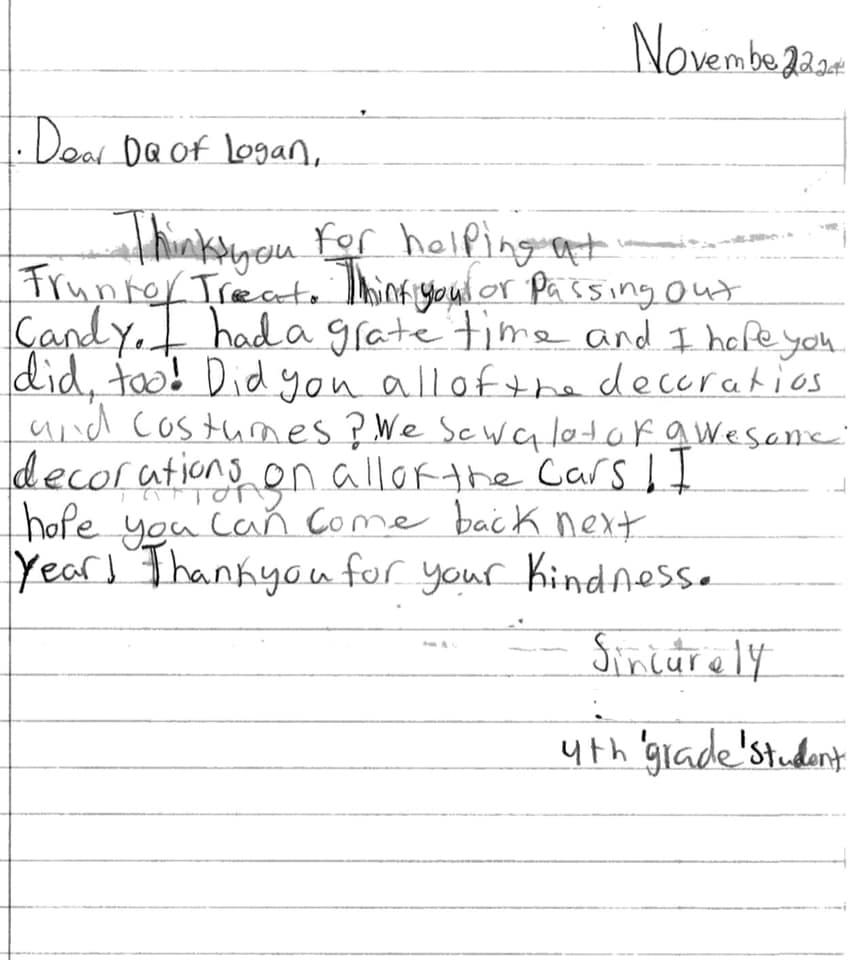 Novembe 22 24
Dear DQ of Logan,
Thinks you for helping at
Trunk or Treat. Think you for passing out
Candy. I had a grate time and I hope you
did, too! Did you all of the decoratios
and costumes? We saw a lot of awesome
decorations on all of the cars! I
ations
hope you can come back next
Year! Thank you for your Kindness.
Sincurely
4th 'grade' student